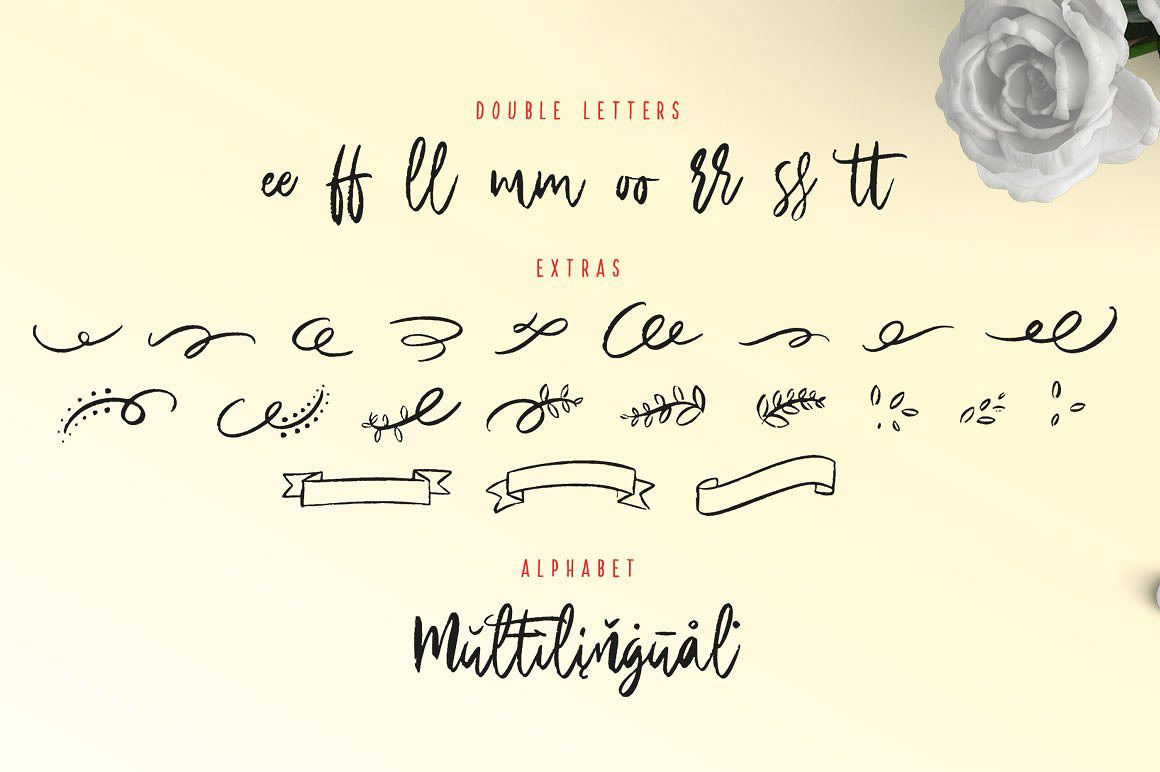 DOUBLE LETTERS
ee ff ll mm oo rr ss tt
EXTRAS
ALPHABET
Mŭltìlįňġūåŀ